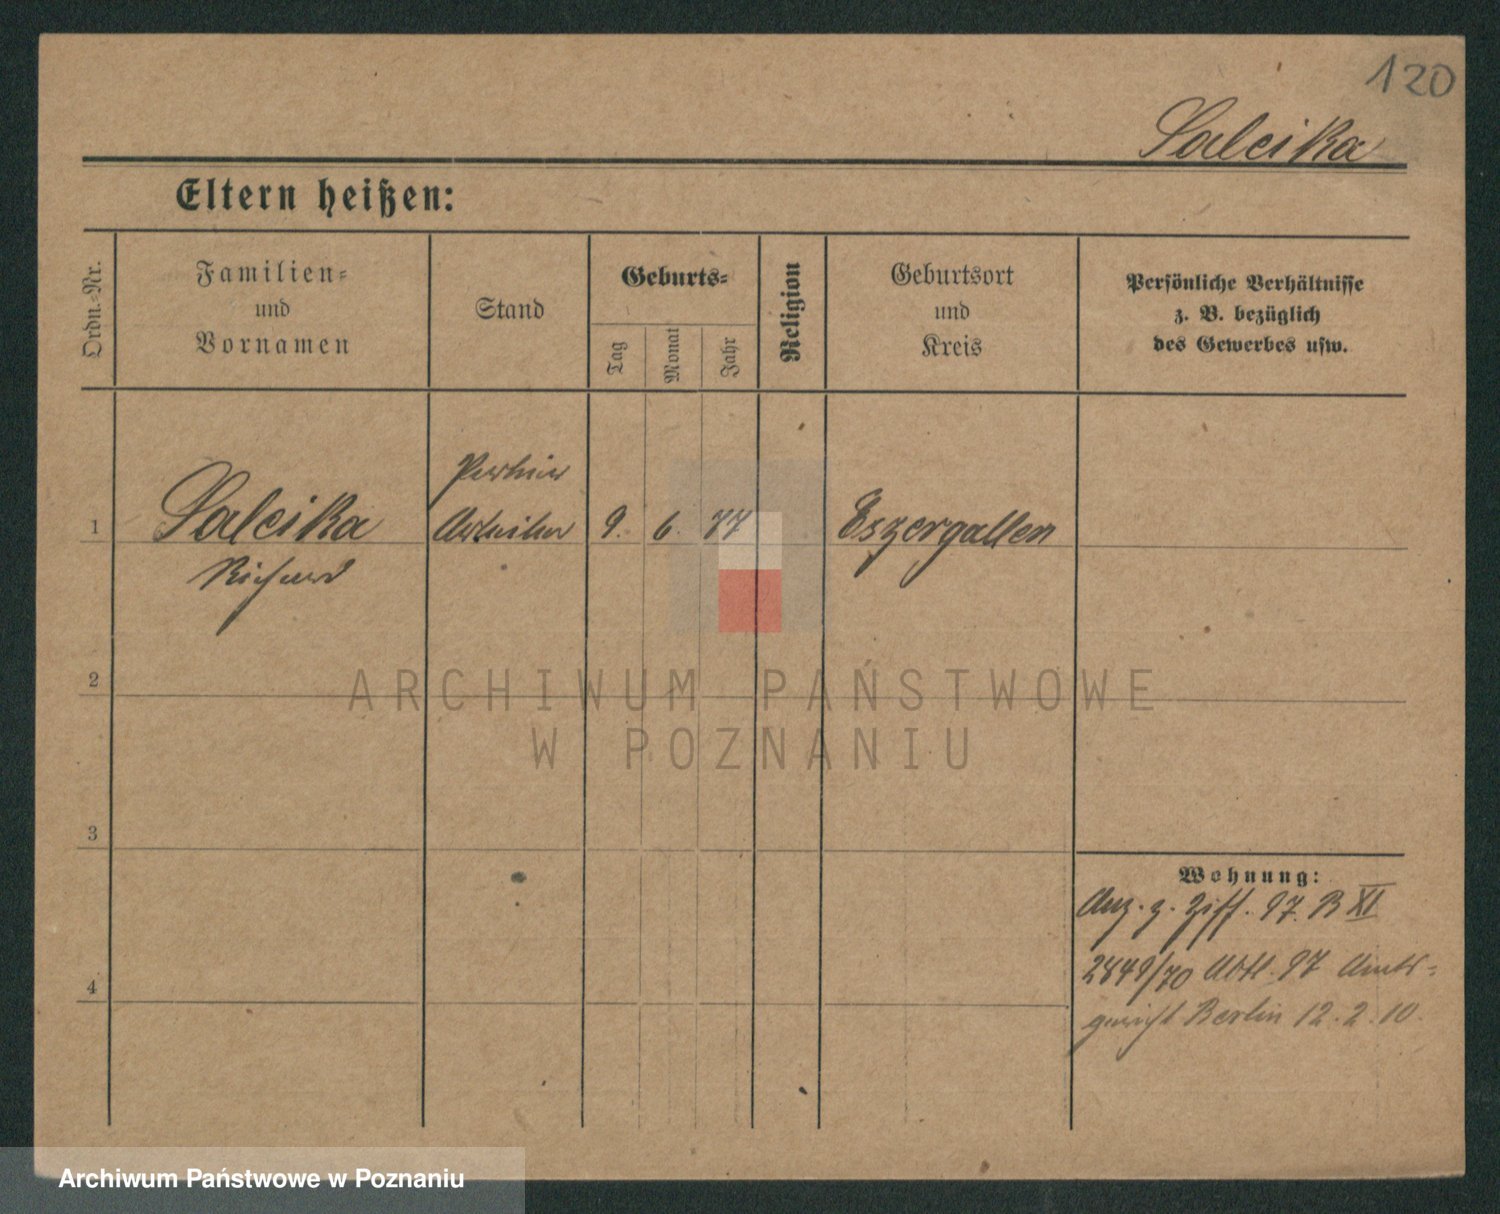 120
Salcika
Eltern heißen:
Ordn.-Nr.
Familien-
und
Vornamen
Stand
Geburts-
Tag
Monat
Jahr
Religion
Geburtsort
und
Kreis
Persönliche Verhältnisse
z. B. bezüglich
des Gewerbes usw.
1
Salcika
Richard
Arbeiter
9.
6.
77
Eszergallen
2
ARCHIWUM PAŃSTWOWE
W POZNANIU
3
4
Wohnung:
Anz. z. Ziff. 97. B XI
2849/70 Abtl. 97 Amts-
gericht Berlin 12.2.10.
Archiwum Państwowe w Poznaniu